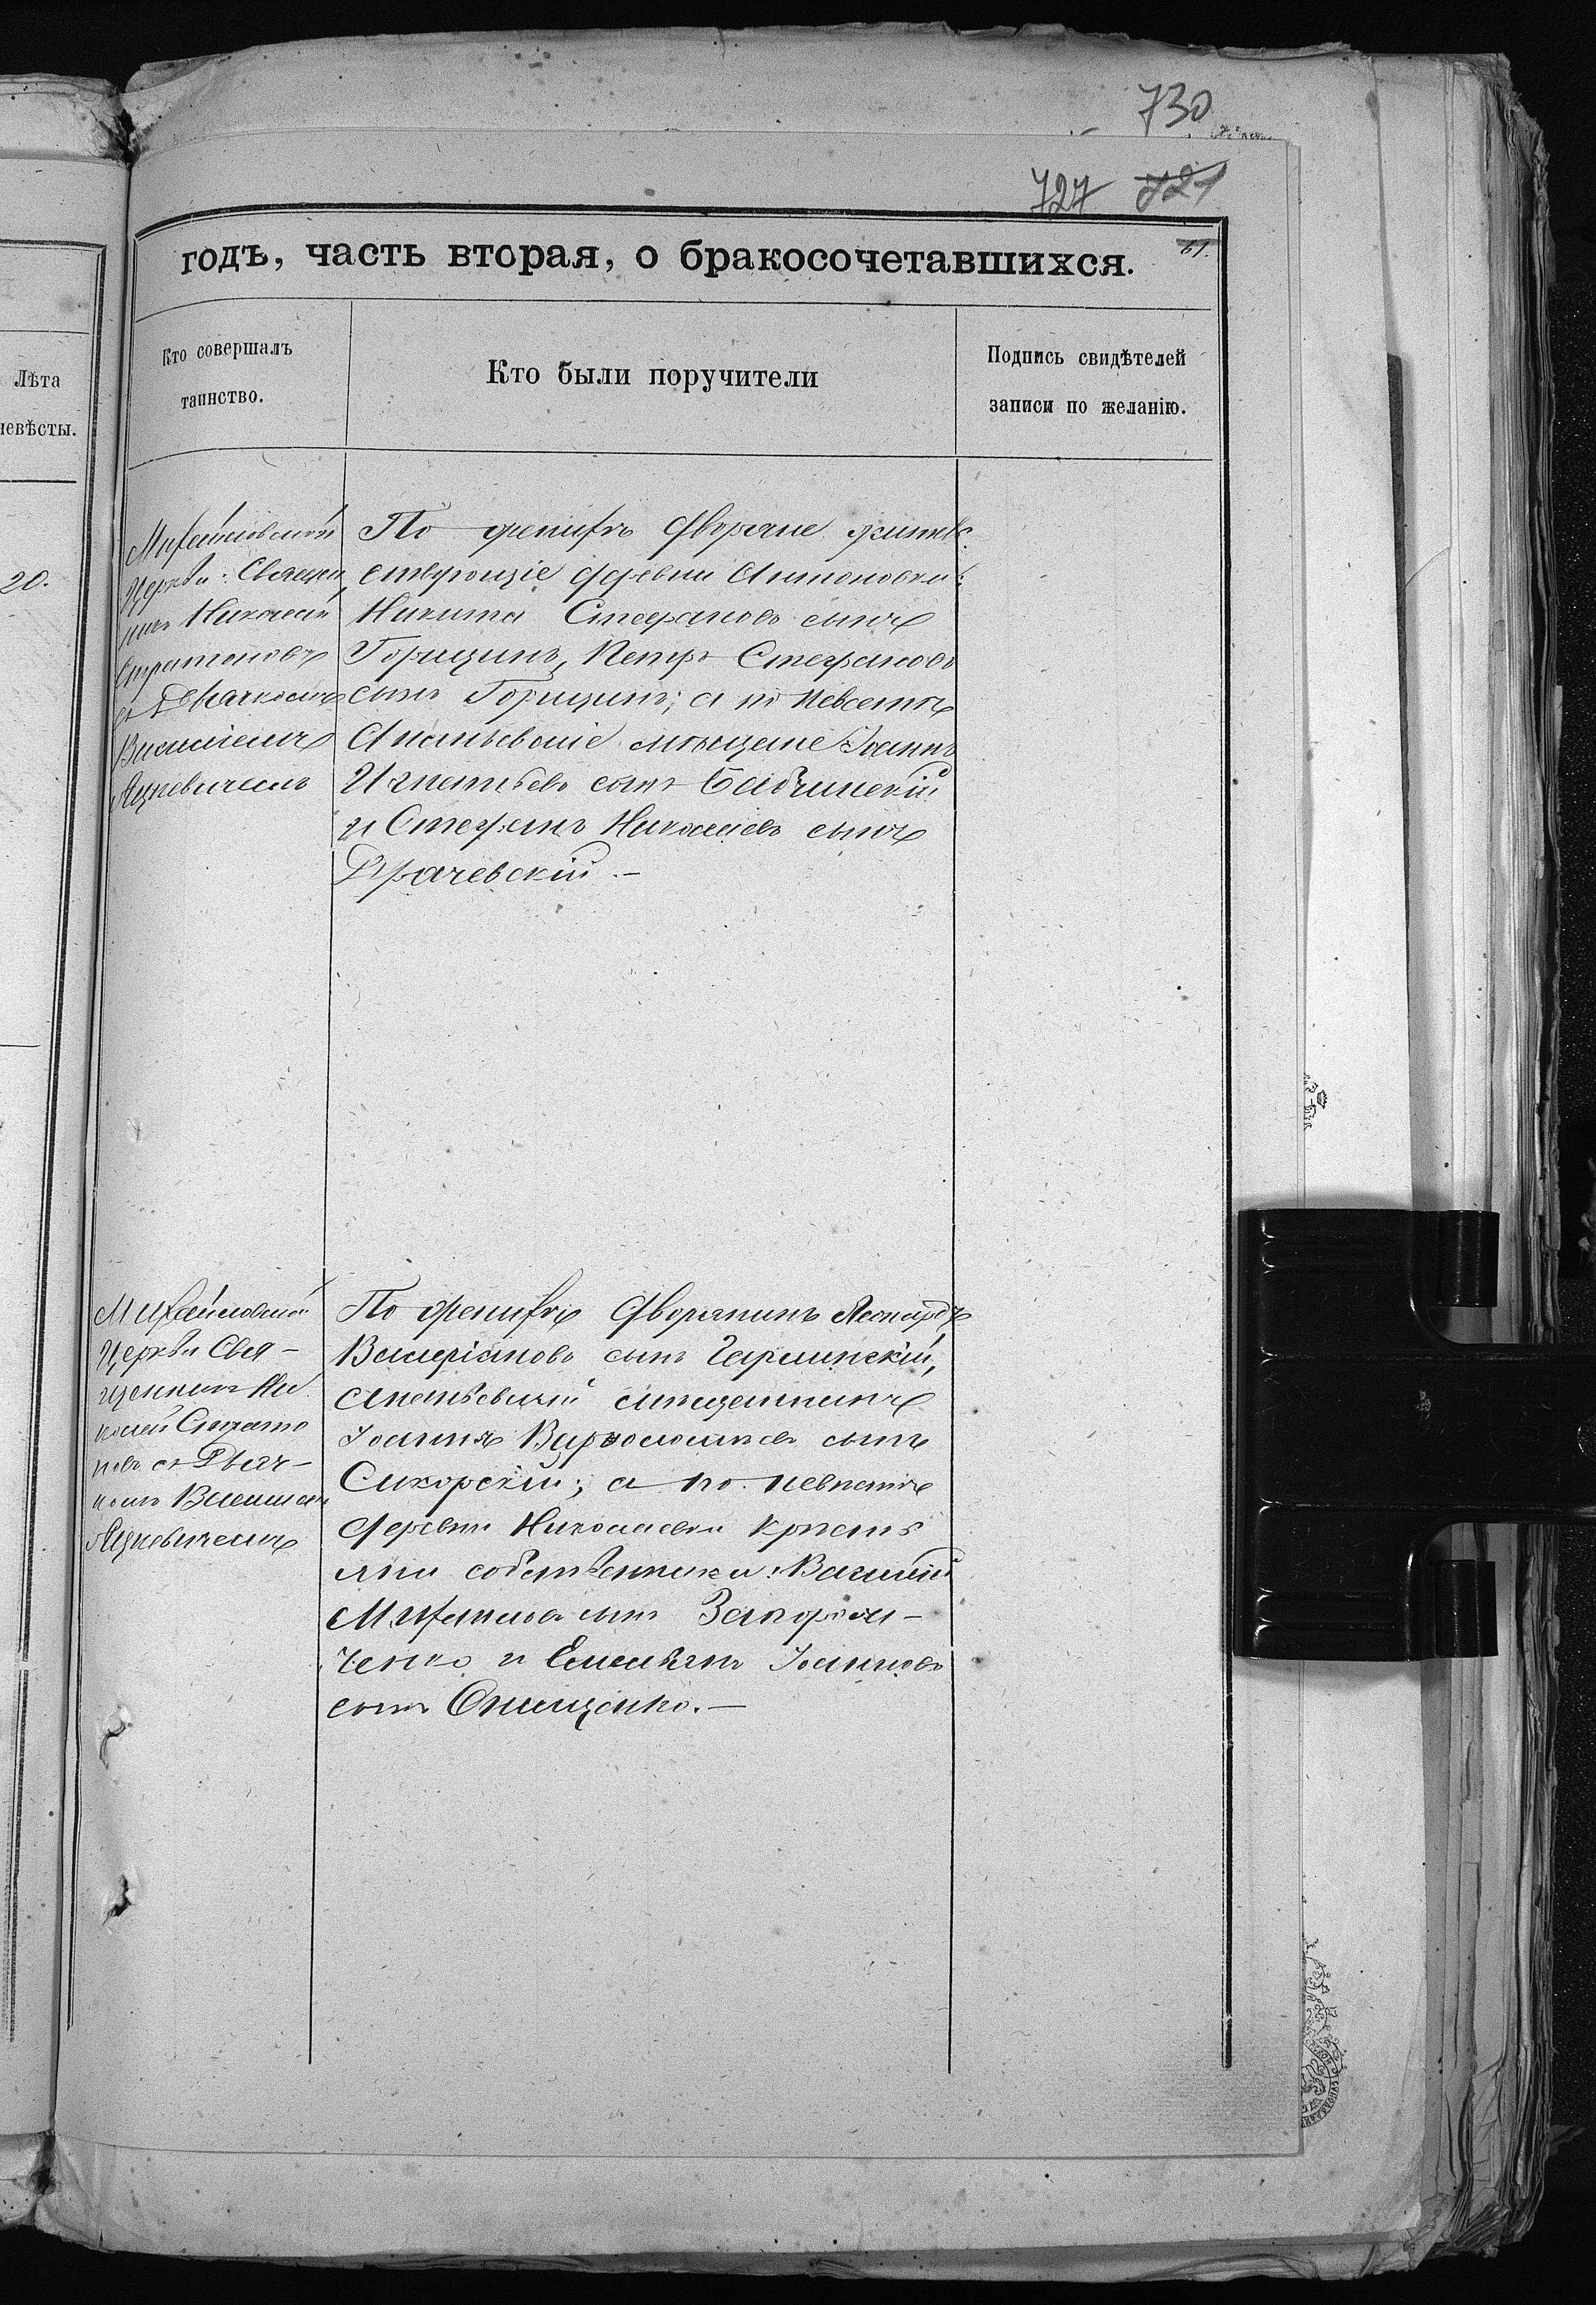 730
727 721
годъ, часть вторая, о бракосочетавшихся.
61.
Кто совершалъ
таинство.
Кто были поручители
Подпись свидѣтелей
записи по желанію.
Лѣта
невѣсты.
20.
Михайловской
церкви: Священ
никъ Николай
Стратоновъ
съ Дьячкомъ
Василіемъ
Яцкевичемъ
По женихѣ Дворяне жительс
ствующіе деревни Антоновки:
Никита Стефановъ сынъ
Горицинъ, Петръ Стефановъ
сынъ Горицинъ; а по невестѣ
мѣщане Іоаннъ
Игнатьевъ сынъ Бабчинскій
и Стефанъ Николаевъ сынъ
Драчевскій. —
Михайловской
Церкви Свя-
щенникъ Ни
колай Страто
новъ съ Дьяч-
комъ Василіем
Яцкевичемъ
По женихѣ Дворянинъ Леонардъ
Валеріановъ сынъ Чарлинскій,
мѣщанинъ
Іоаннъ Варѳоломѣевъ сынъ
Сикорскій; а по невѣстѣ
деревни Николаевки крѣстья
яни собственники: Василій
Михаиловъ сынъ Запорож-
ченко и Емельянъ Іоанновъ
сынъ Онищенко. —